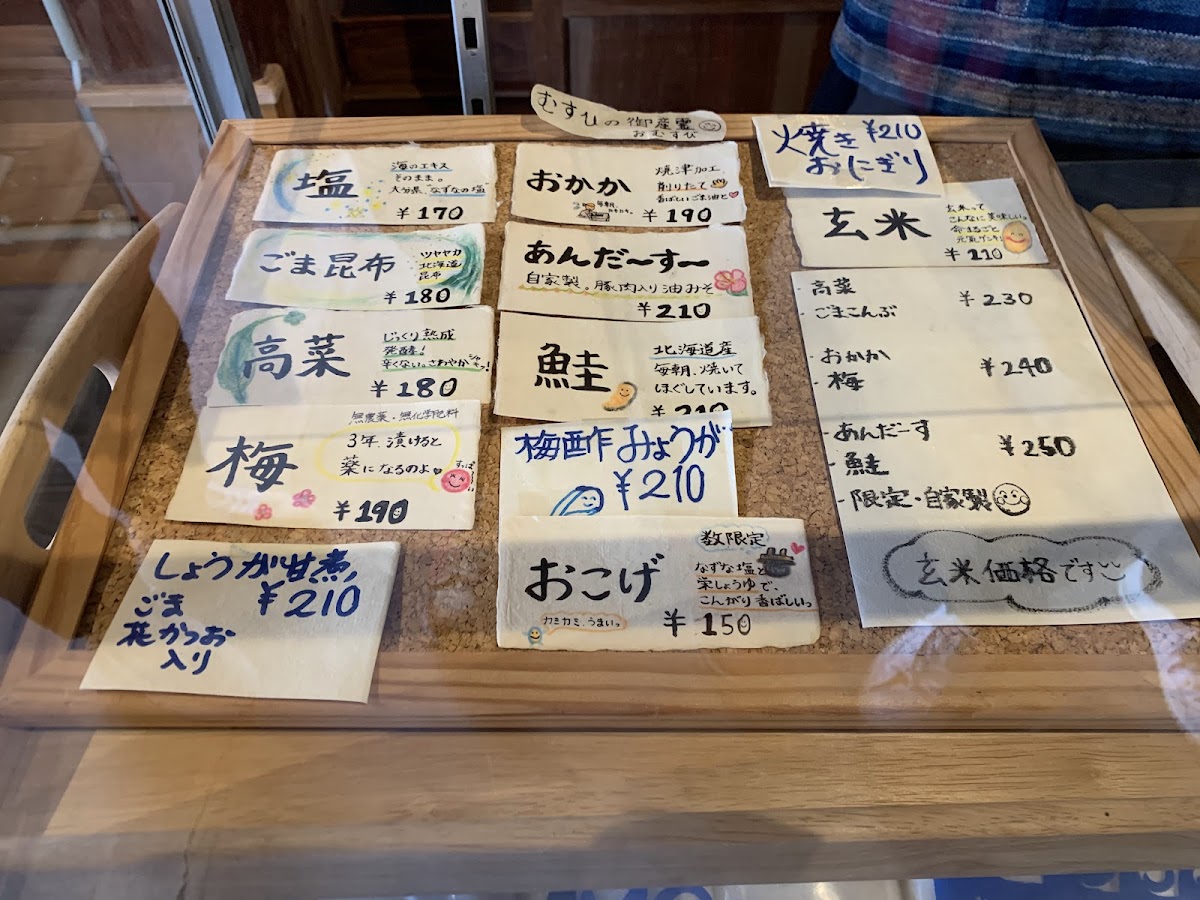 むすひの御産霊
おむすび
塩
海のエキス
そのまま。
大分県 なずなの塩
¥170
ごま昆布
ツヤヤカ
北海道
昆布
¥180
高菜
じっくり熟成
発酵!
辛くない。さわやか
¥180
梅
無農薬・無化学肥料
3年、漬けると
薬になるのよ
¥190
しょうが甘煮
¥210
ごま
花かつお
入り
おかか
焼津加工
削りたて
香ばしいごま油と
¥190
あんだ〜す〜
自家製。豚肉入り油みそ
¥210
鮭
北海道産
毎朝、焼いて
ほぐしています。
¥210
梅酢作みょうが
¥210
おこげ
数限定
なずな塩と
栄しょうゆで、
こんがり香ばしいっ
カミカミ、うまいっ
¥150
焼き ¥210
おにぎり
玄米
玄米って
こんなに美味しい。
命まるごと
元気ゲンキ!
¥110
・高菜 ¥230
・ごまこんぶ
・おかか ¥240
・梅
・あんだーす ¥250
・鮭
・限定・自家製
玄米価格です